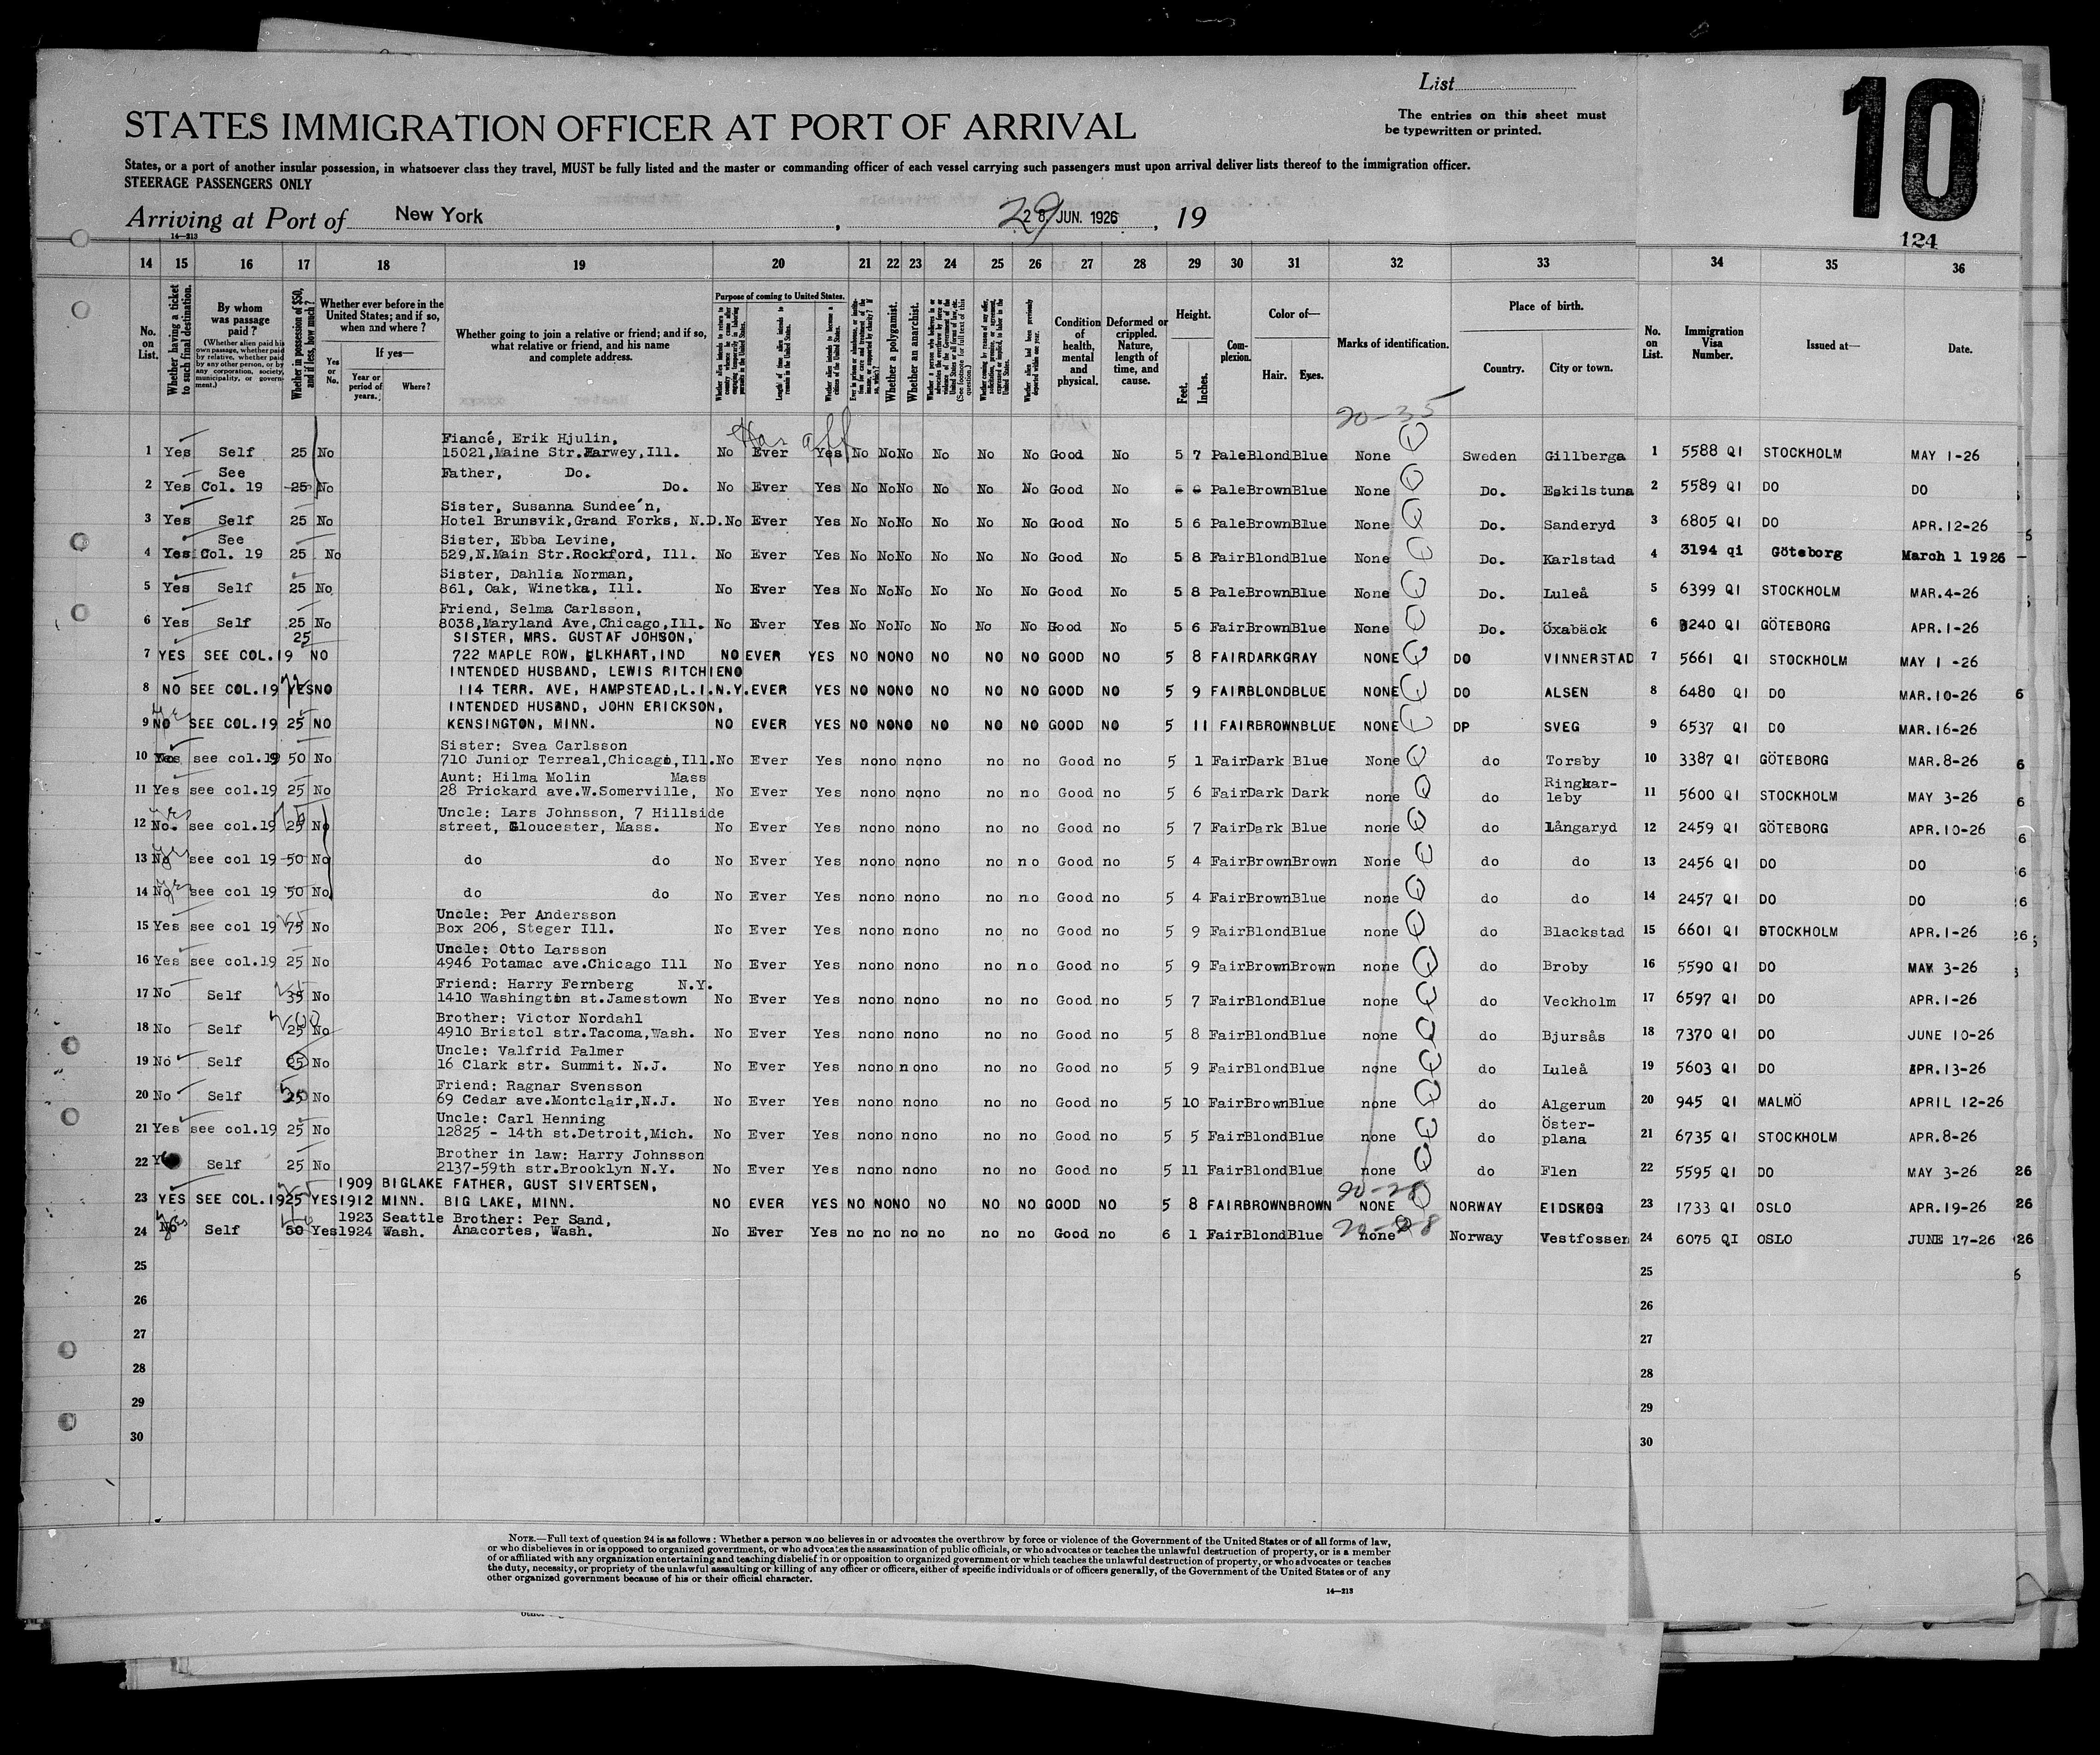 List
10
The entries on this sheet must
be typewritten or printed.
STATES IMMIGRATION OFFICER AT PORT OF ARRIVAL
States, or a port of another insular possession, in whatsoever class they travel, MUST be fully listed and the master or commanding officer of each vessel carrying such passengers must upon arrival deliver lists thereof to the immigration officer.
STEERAGE PASSENGERS ONLY
Arriving at Port of New York , 29 28. JUN. 1926 , 19
14—213
124
14 15 16 17 18 19 20 21 22 23 24 25 26 27 28 29 30 31 32 33 34 35 36
No. on List.
Whether having a ticket to such final destination.
By whom was passage paid?
(Whether alien paid his own passage, whether paid by relative, whether paid by any other person, or by any corporation, society, municipality, or government.)
Whether in possession of $50, and if less, how much?
Whether ever before in the United States; and if so, when and where?
Yes or No.
If yes—
Year or period of years.
Where?
Whether going to join a relative or friend; and if so, what relative or friend, and his name and complete address.
Purpose of coming to United States.
Length of time alien intends to remain in the United States.
Whether alien intends to become a citizen of the United States.
Whether a polygamist.
Whether an anarchist.
(See footnote for full text of this question.)
Condition of health, mental and physical.
Deformed or crippled. Nature, length of time, and cause.
Height.
Feet.
Inches.
Complexion.
Color of—
Hair.
Eyes.
Marks of identification.
Place of birth.
Country.
City or town.
No. on List.
Immigration Visa Number.
Issued at—
Date.
20-35
Has aff
Fiancé, Erik Hjulin,
1 Yes Self 25 No 15021,Maine Str.Harwey,Ill. No Ever Yes No No No No No No Good No 5 7 Pale Blond Blue None Sweden Gillberga 1 5588 QI STOCKHOLM MAY 1-26
See Father, Do.
2 Yes Col. 19 25 No Do. No Ever Yes No No No No No No Good No Pale Brown Blue None Do. Eskilstuna 2 5589 QI DO DO
Sister, Susanna Sundee'n,
3 Yes Self 25 No Hotel Brunsvik,Grand Forks, N.D. No Ever Yes No No No No No No Good No 5 6 Pale Brown Blue None Do. Sanderyd 3 6805 QI DO APR.12-26
See Sister, Ebba Levine,
4 Yes Col. 19 25 No 529,N.Main Str.Rockford, Ill. No Ever Yes No No No No No No Good No 5 8 Fair Blond Blue None Do. Karlstad 4 3194 qi Göteborg March 1 1926
Sister, Dahlia Norman,
5 Yes Self 25 No 861, Oak, Winetka, Ill. No Ever Yes No No No No No No Good No 5 8 Pale Brown Blue None Do. Luleå 5 6399 QI STOCKHOLM MAR.4-26
Friend, Selma Carlsson,
6 Yes Self 25 No 8038,Maryland Ave,Chicago,Ill. No Ever Yes No No No No No No Good No 5 6 Fair Brown Blue None Do. Öxabäck 6 3240 QI GÖTEBORG APR.1-26
SISTER, MRS. GUSTAF JOHSON,
7 YES SEE COL.19 25 NO 722 MAPLE ROW, ELKHART,IND NO EVER YES NO NO NO NO NO NO GOOD NO 5 8 FAIR DARK GRAY NONE DO VINNERSTAD 7 5661 QI STOCKHOLM MAY 1 -26
INTENDED HUSBAND, LEWIS RITCHIE NO
8 NO SEE COL.19 YES NO 114 TERR. AVE, HAMPSTEAD,L.I.N.Y. EVER YES NO NO NO NO NO NO GOOD NO 5 9 FAIR BLOND BLUE NONE DO ALSEN 8 6480 QI DO MAR.10-26
INTENDED HUSBND, JOHN ERICKSON,
9 NO yes SEE COL.19 25 NO KENSINGTON, MINN. NO EVER YES NO NO NO NO NO NO GOOD NO 5 11 FAIR BROWN BLUE NONE DP SVEG 9 6537 QI DO MAR.16-26
Sister: Svea Carlsson
10 Yes see col.19 50 No 710 Junior Terreal,Chicago,Ill. No Ever Yes no no no no no no Good no 5 1 Fair Dark Blue None do Torsby 10 3387 QI GÖTEBORG MAR.8-26
Aunt: Hilma Molin Mass
11 Yes see col.19 25 No 28 Prickard ave.W.Somerville, No Ever Yes no no no no no no Good no 5 6 Fair Dark Dark none do Ringkarleby 11 5600 QI STOCKHOLM MAY 3-26
Uncle: Lars Johnsson, 7 Hillside
12 No. yes see col.19 25 No street, Gloucester, Mass. No Ever Yes no no no no no no Good no 5 7 Fair Dark Blue none do Långaryd 12 2459 QI GÖTEBORG APR.10-26
13 No yes see col 19 50 No do do No Ever Yes no no no no no no Good no 5 4 Fair Brown Brown None do do 13 2456 QI DO DO
14 No yes see col 19 50 No do do No Ever Yes no no no no no no Good no 5 4 Fair Brown Blue none do do 14 2457 QI DO DO
Uncle: Per Andersson
15 Yes see col 19 75 No Box 206, Steger Ill. No Ever Yes no no no no no no Good no 5 9 Fair Blond Blue none do Blackstad 15 6601 QI STOCKHOLM APR.1-26
Uncle: Otto Larsson
16 Yes see col.19 25 No 4946 Potamac ave.Chicago Ill No Ever Yes no no no no no no Good no 5 9 Fair Brown Brown none do Broby 16 5590 QI DO MAY 3-26
Friend: Harry Fernberg N.Y.
17 No Self 35 No 1410 Washington st.Jamestown No Ever Yes no no no no no no Good no 5 7 Fair Blond Blue none do Veckholm 17 6597 QI DO APR.1-26
Brother: Victor Nordahl
18 No Self 25 No 4910 Bristol str.Tacoma,Wash. No Ever Yes no no no no no no Good no 5 8 Fair Blond Blue none do Bjursås 18 7370 QI DO JUNE 10-26
Uncle: Valfrid Palmer
19 No Self 25 No 16 Clark str. Summit. N.J. No Ever Yes no no no no no no Good no 5 9 Fair Blond Blue none do Luleå 19 5603 QI DO APR.13-26
Friend: Ragnar Svensson
20 No Self 25 No 69 Cedar ave.Montclair,N.J. No Ever Yes no no no no no no Good no 5 10 Fair Brown Blue none do Algerum 20 945 QI MALMÖ APRIL 12-26
Uncle: Carl Henning
21 Yes see col.19 25 No 12825 - 14th st.Detroit,Mich. No Ever Yes no no no no no no Good no 5 5 Fair Blond Blue none do Österplana 21 6735 QI STOCKHOLM APR.8-26
Brother in law: Harry Johnsson
22 Self 25 No 2137-59th str.Brooklyn N.Y. No Ever Yes no no no no no no Good no 5 11 Fair Blond Blue none do Flen 22 5595 QI DO MAY 3-26
1909 BIGLAKE FATHER, GUST SIVERTSEN, 20-28
23 YES SEE COL.19 25 YES 1912 MINN. BIG LAKE, MINN. NO EVER YES NO NO NO NO NO NO GOOD NO 5 8 FAIR BROWN BROWN NONE NORWAY EIDSKOG 23 1733 QI OSLO APR.19-26
1923 Seattle Brother: Per Sand, 20-28
24 No yes Self 50 Yes 1924 Wash. Anacortes, Wash. No Ever Yes no no no no no no Good no 6 1 Fair Blond Blue none Norway Vestfossen 24 6075 QI OSLO JUNE 17-26
25 25
26 26
27 27
28 28
29 29
30 30
NOTE.—Full text of question 24 is as follows: Whether a person who believes in or advocates the overthrow by force or violence of the Government of the United States or of all forms of law,
or who disbelieves in or is opposed to organized government, or who advocates the assassination of public officials, or who advocates or teaches the unlawful destruction of property, or is a member
of or affiliated with any organization entertaining and teaching disbelief in or opposition to organized government or which teaches the unlawful destruction of property, or who advocates or teaches
the duty, necessity, or propriety of the unlawful assaulting or killing of any officer or officers, either of specific individuals or of officers generally, of the Government of the United States or of any
other organized government because of his or their official character.
14—213